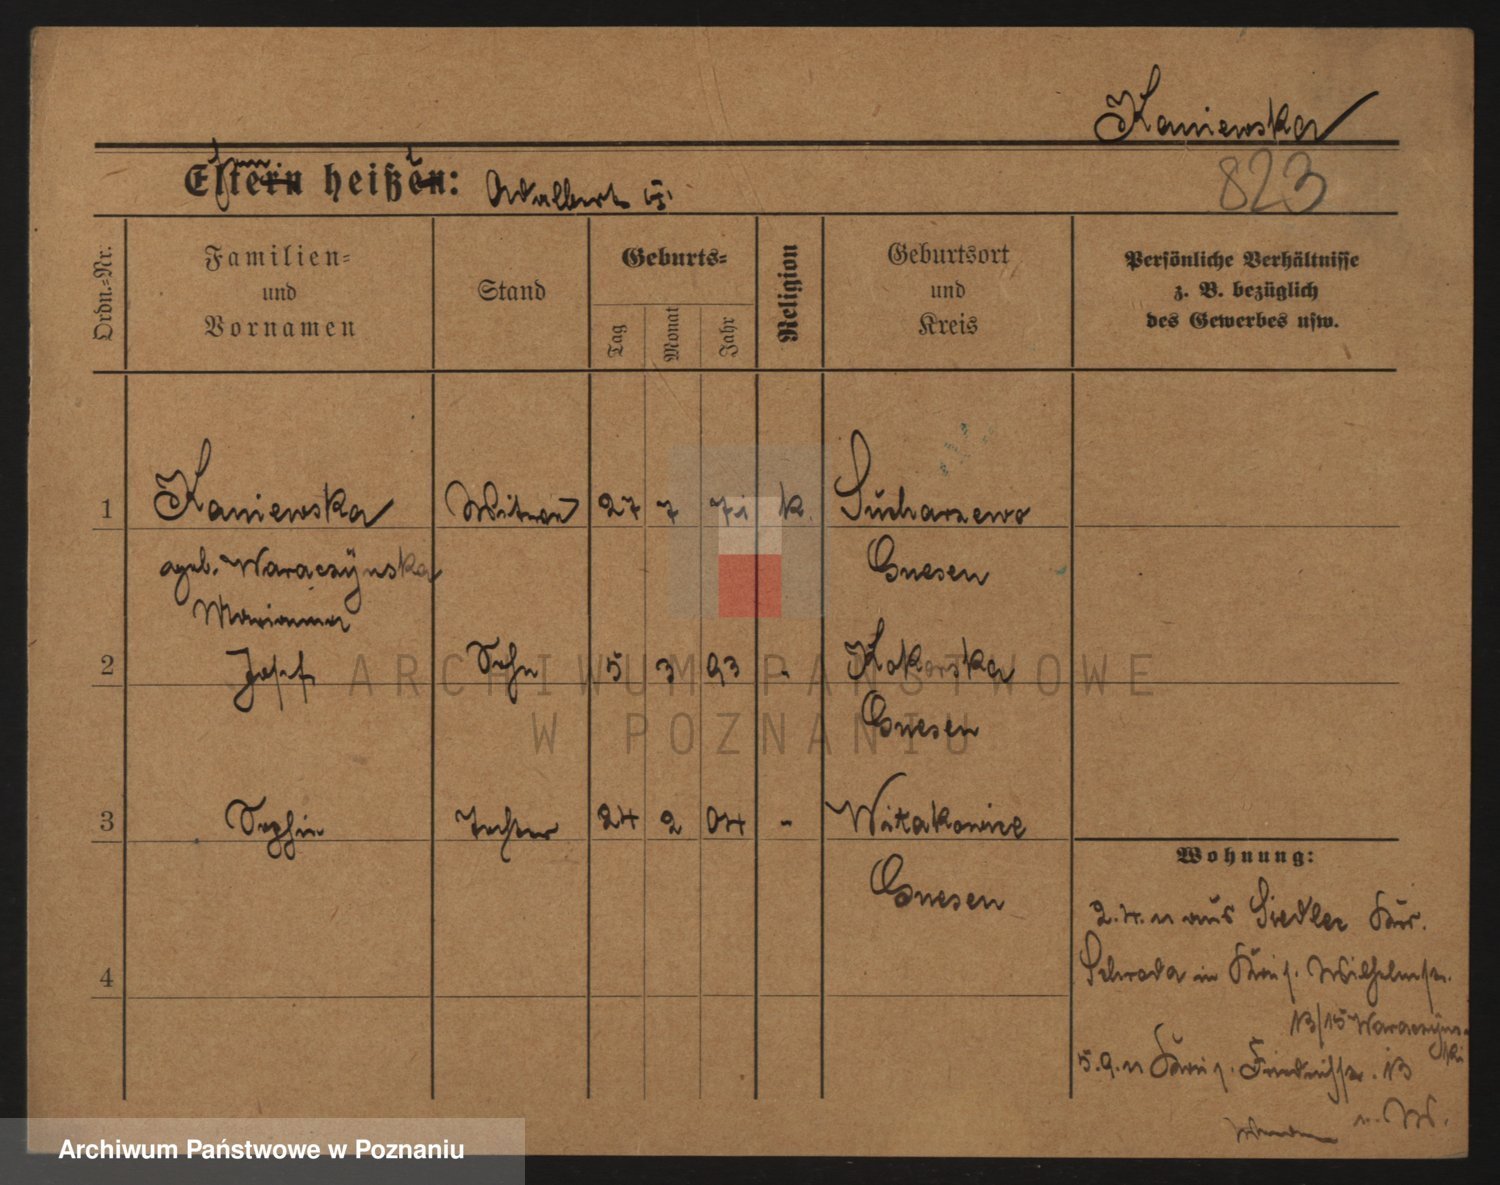 Kaniewska
823
Eltern heißen: Adalbert
Ordn.-Nr.
Familien-
und
Vornamen
Stand
Geburts-
Tag
Monat
Jahr
Religion
Geburtsort
und
Kreis
Persönliche Verhältnisse
z. B. bezüglich
des Gewerbes usw.
1 Kaniewska Witwe 27 7 71 k. Sucharzewo
geb. Waraczynska Gnesen
Marianna
2 Josef Sohn 5 3 93 - Kokorska
Gnesen
3 Sophie Tochter 24 2 04 - Witakowice
Gnesen
Wohnung:
2.4.11 aus Siedlec Kr.
Schroda in Wilhelmstr.
13/15 Waraczyns-
ki
5.9.11 Friedrichstr. 13
4
ARCHIWUM PAŃSTWOWE
W POZNANIU
Archiwum Państwowe w Poznaniu